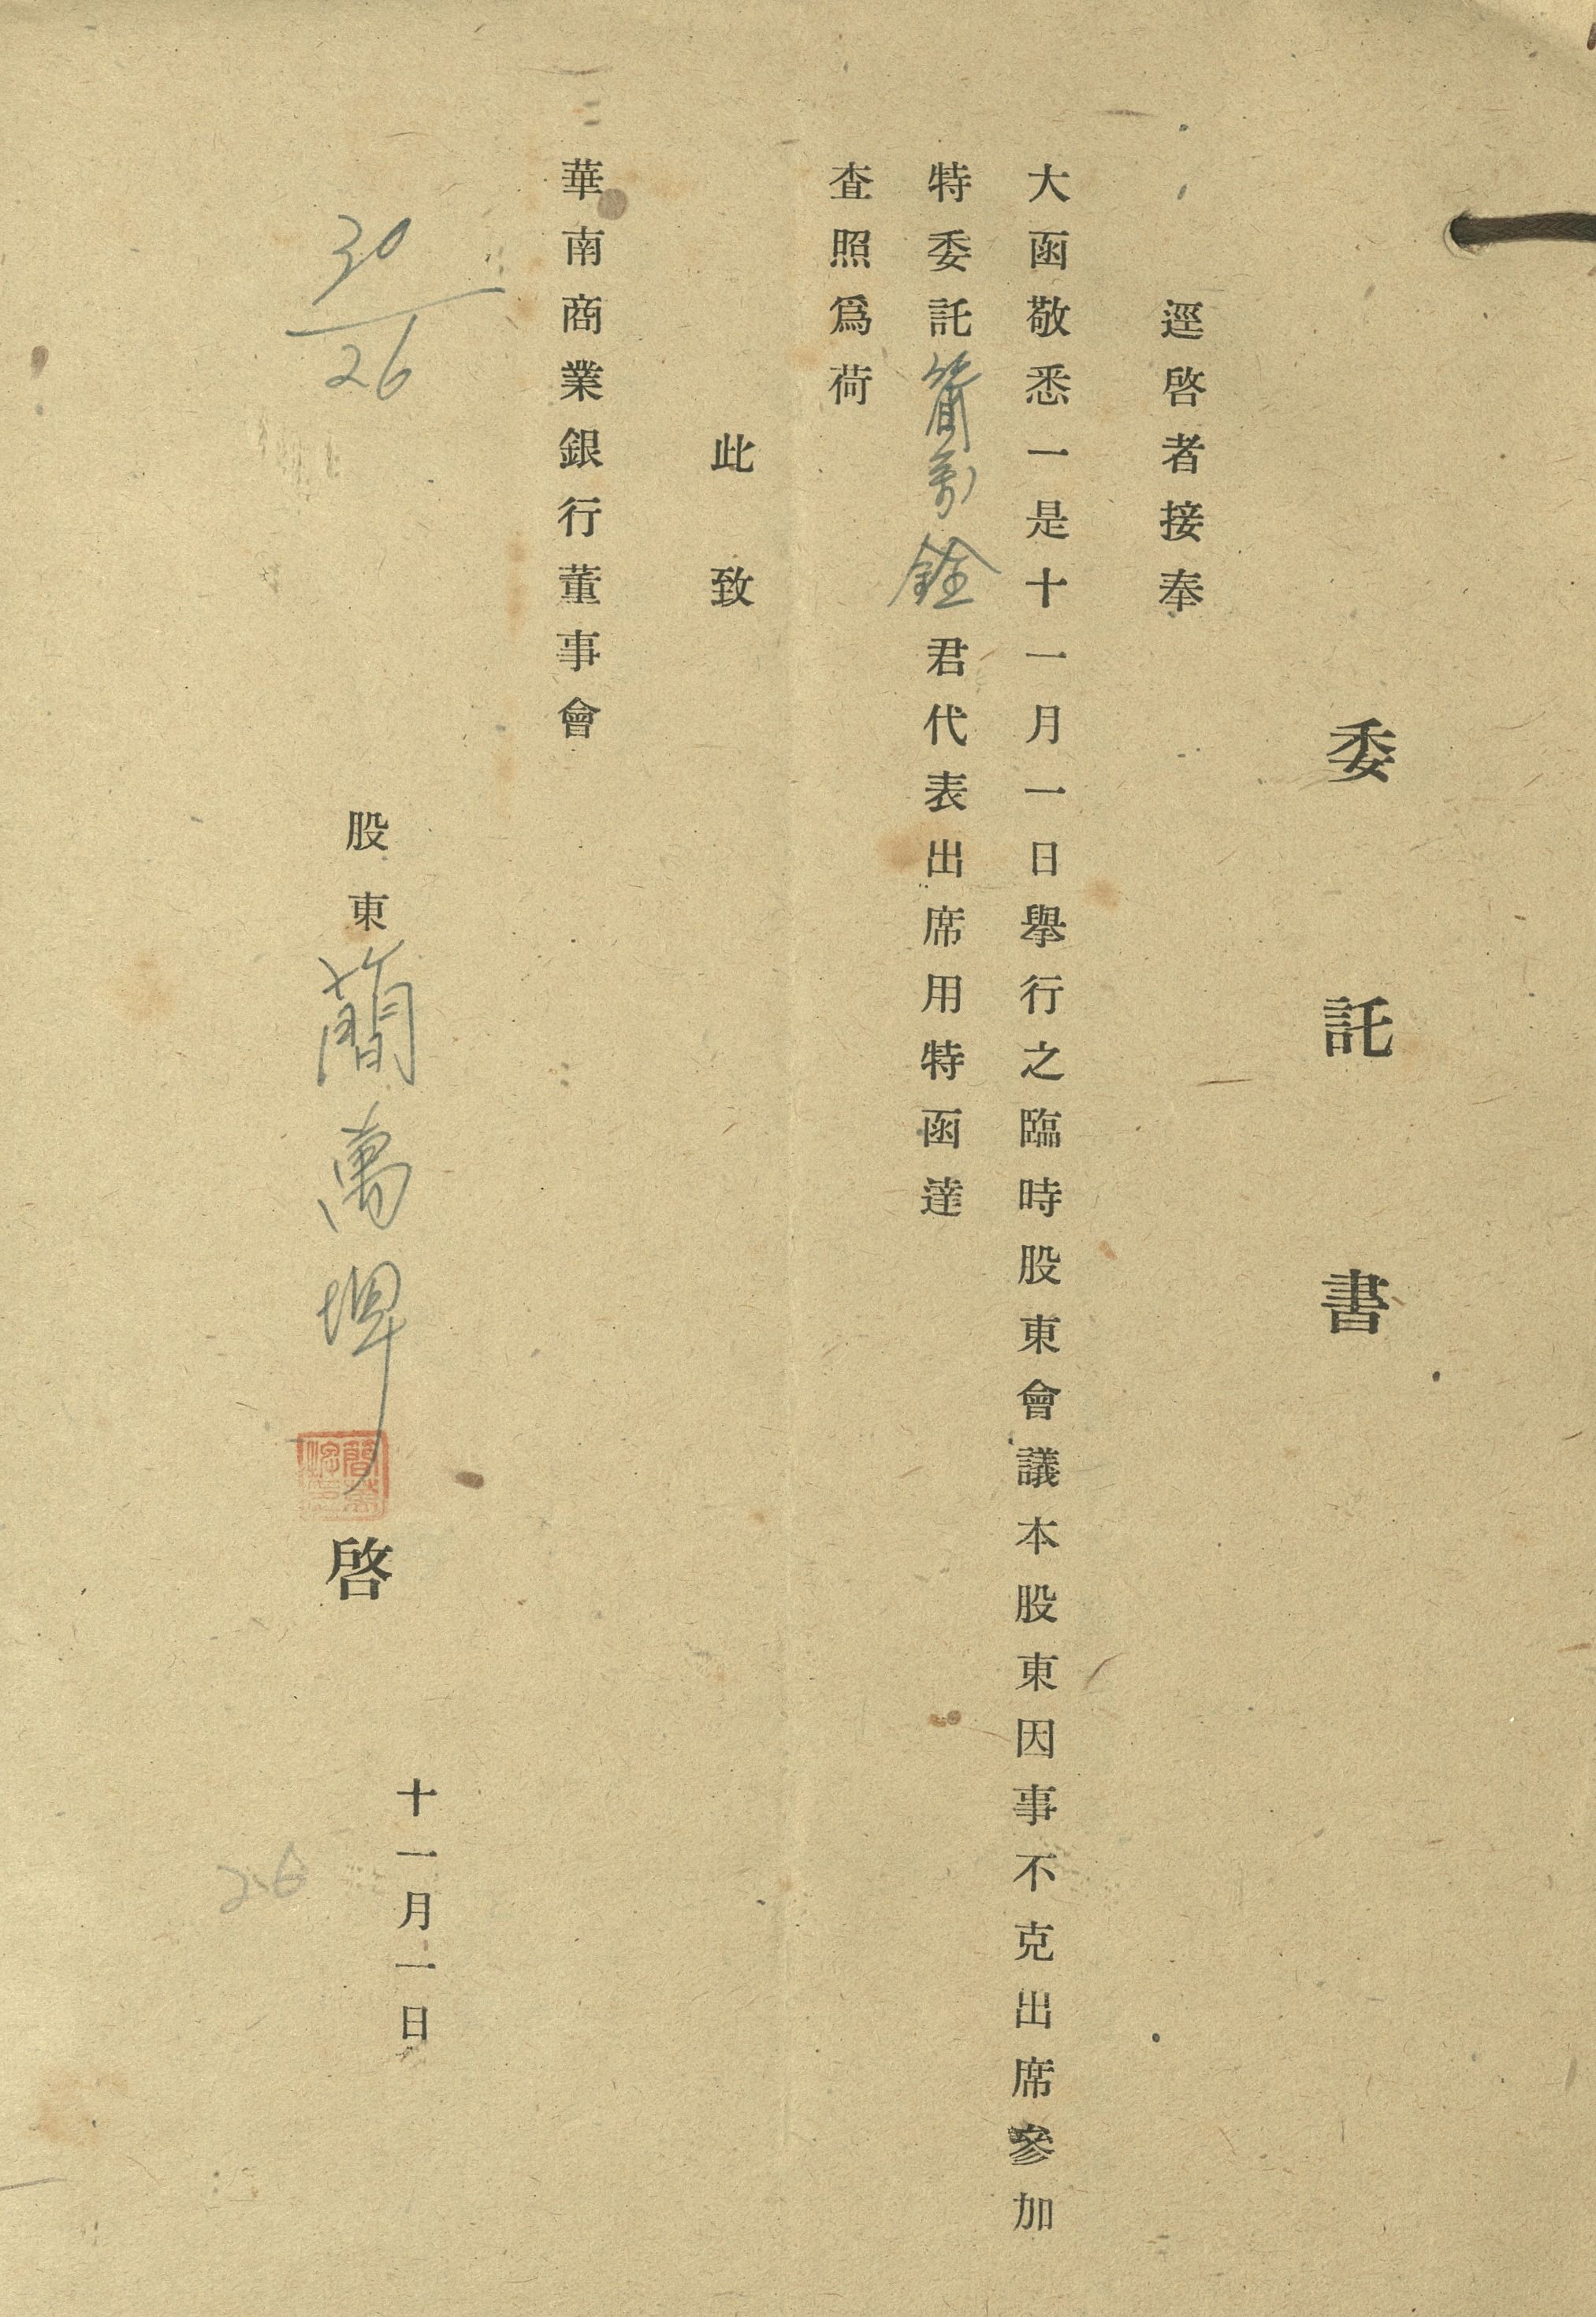 委託書
逕啓者接奉
大函敬悉一是十一月一日舉行之臨時股東會議本股東因事不克出席參加
特委託簡萬銓君代表出席用特函達
查照爲荷
此致
華南商業銀行董事會
十一月一日
股東簡萬 啓
30
26
26